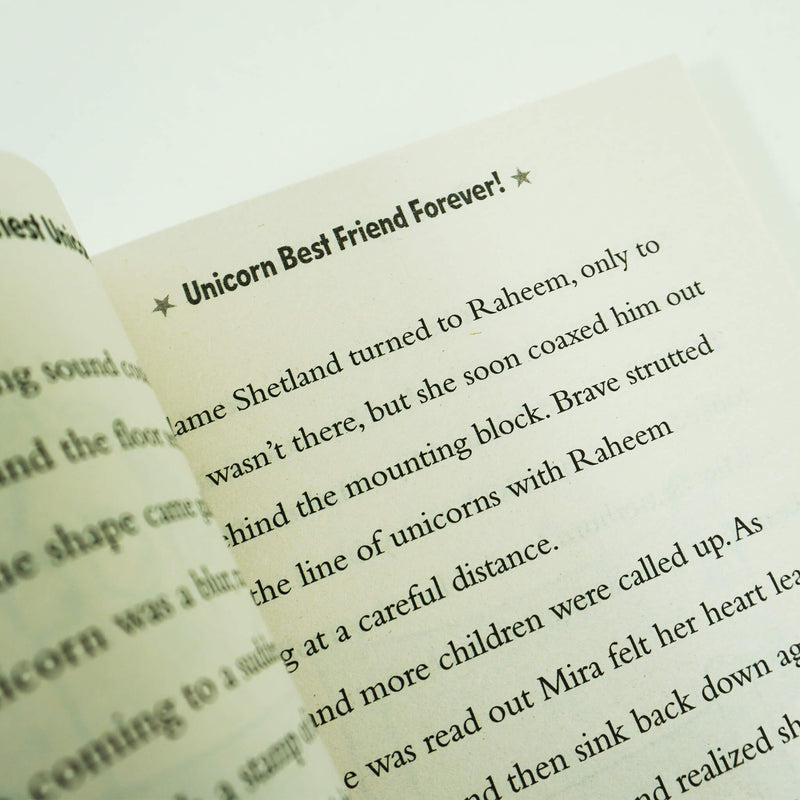 Unicorn
ng sound
and the floor
shape came
unicorn was a blur
coming to a
a stamp
★ Unicorn Best Friend Forever! ★
lame Shetland turned to Raheem, only to
wasn't there, but she soon coaxed him out
ehind the mounting block. Brave strutted
the line of unicorns with Raheem
g at a careful distance.
and more children were called up. As
e was read out Mira felt her heart lea
nd then sink back down ag
nd realized sh